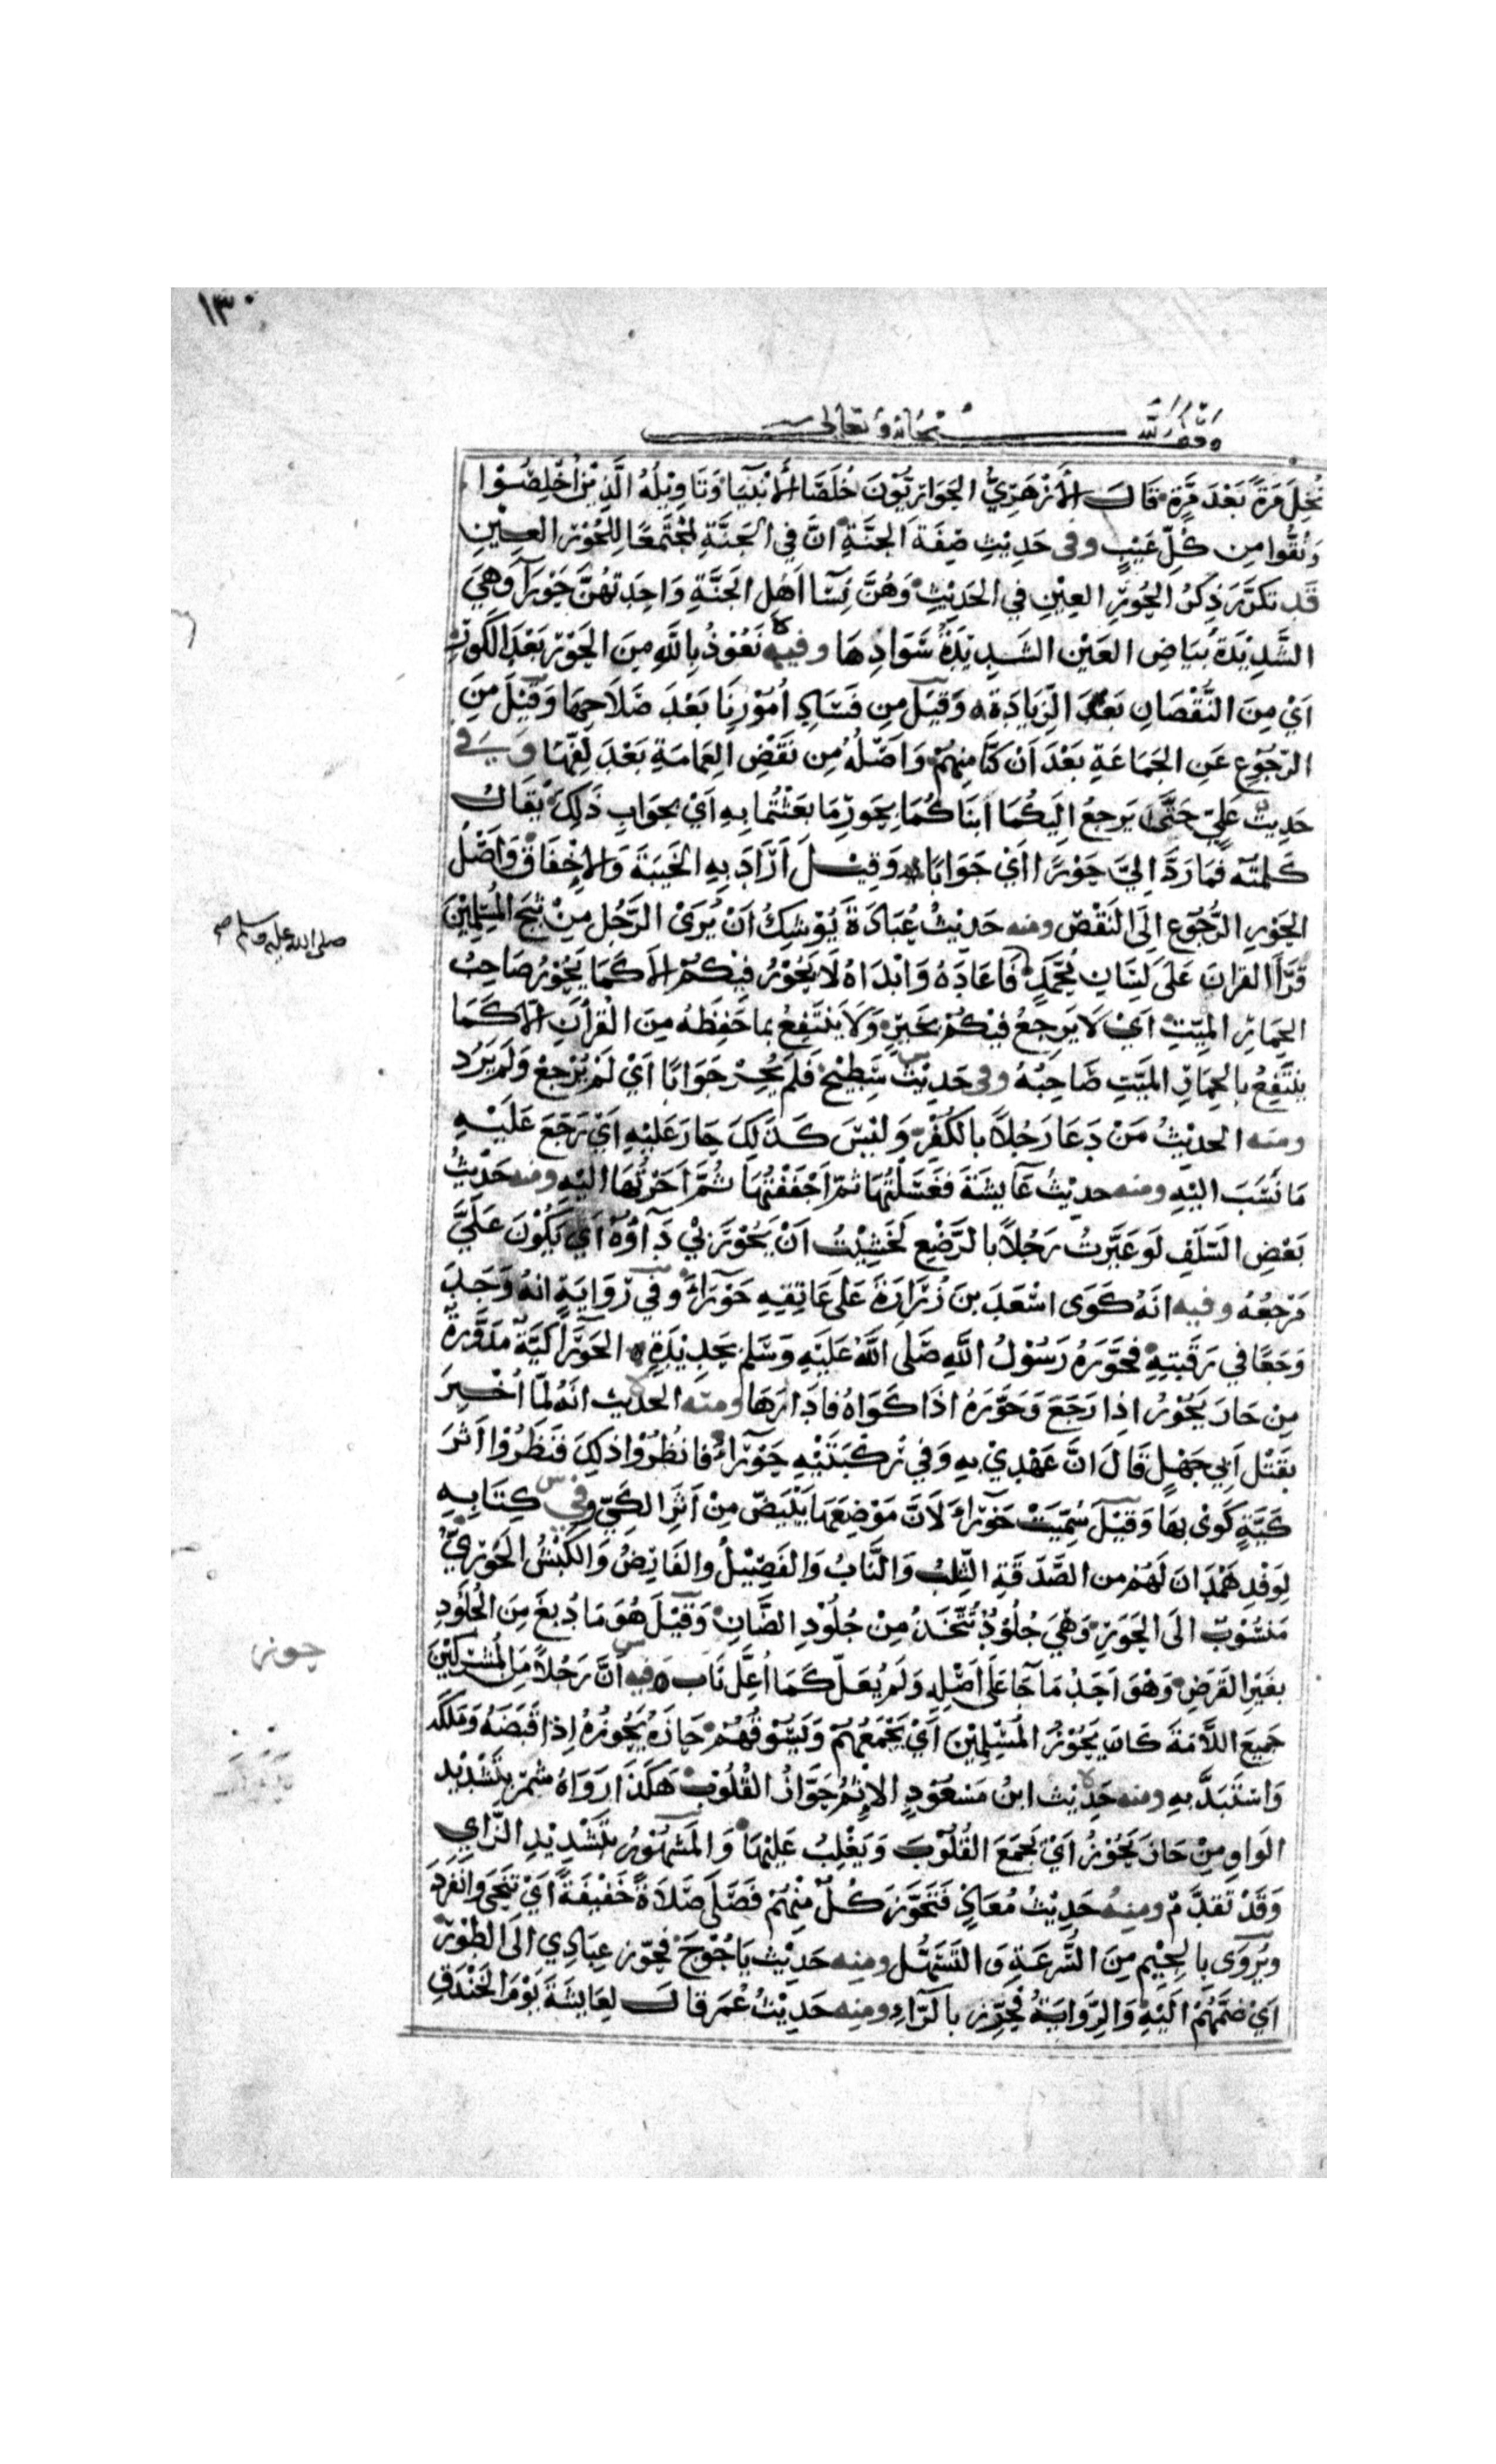 ١٣٠
وقف لله سبحانه وتعالى
نُخِلَ مَرَةً بَعْدَ مَرَّةٍ قَالَ الأَزْهَرِيُّ الحَوَارِيُّوْنَ خُلَصَاءُ الأَنْبِيَا وَتَاوِيْلُهُ الَّذِيْنَ أُخْلِصُوْا
وَنُقُّوا مِن كُلِّ عَيْبٍ وفى حَدِيْثِ صِفَةَ الجَنَّةِ انَّ فِي الجَنَّةِ لَمُجْتَمَعًا لِلْحُوْرِ العِيْنِ
قَد تكَرَّرَ ذِكرُ الحُوْرِ العِيْنِ في الحَدِيْثِ وَهُنَّ نِسَا اَهْلِ الجَنَّةِ وَاحِدَتهُنَّ حَوْرَآ وَهِيَ
الشَّدِيْدَةُ بَيَاضِ العَيْن الشَدِيْدَةُ سَوَادِهَا وفيه نَعُوْذُ بِاللَّهِ مِنَ الحَوْرِ بَعْدَ الكَوْرِ
اَيْ مِنَ النُّقْصَانِ بَعْدَ الزِّيَادَةِ وَقِيْلَ مِن فَسَادِ اُمُوْرِنَا بَعْدَ صَلَاحِهَا وَقِيْلَ مِنَ
الرّجُوْعِ عَنِ الجَمَاعَةِ بَعْدَ اَنْ كنَّا مِنهُمْ وَاَصْلُهُ مِن نَقْضِ العِمَامَةِ بَعْدَ لَفِّهَا وَفي
حَدِيْثِ عَلِيّ حَتَّى يَرجِعُ اِلَيكُمَا ابنَاكُمَا بِحَورِ مَا بَعَثْتُما بِهِ اَيْ بجَوَابِ ذَلِكَ يُقَالُ
كَلمتُه فَمَا رَدَّ اِليَّ حَوْرًا اَيْ جَوَابًا وَقِيْلَ اَرَادَ بِهِ الخَيبَةَ وَالاِخفَاقَ وَاَصْلُ
الحَوْرِ الرُّجُوْع اِلَى النَقْصِ ومنه حَدِيْثُ عُبَادَةَ يُوْشِكُ اَنْ يُرَىْ الرَّجُل مِنْ ثَبَجِ المُسْلِمِيْنَ
قَرَأَ القرانَ عَلَى لِسَانِ مُحَمَّدٍ فَاَعَادَهُ وَابْدَاهُ لَا يَحُوْرُ فِيْكُمْ اِلاَّ كَمَا يَحُوْرُ صَاحِبُ
صلى الله عليه وسلم صح
الحِمَارِ المَيِّتِ اَيْ لَا يَرجِعُ فِيْكُمْ بخَيرٍ وَلَا يَنْتَفِعُ بما حَفِظَهُ مِنَ القُرْأَنِ اِلاَّ كَمَا
يَنْتَفِعُ بالحِمَارِ المَيّتِ صَاحِبُهُ وفى حَدِيْثِ سَطِيْحٍ فَلَم يُحِرْ جَوَابًا اَيْ لَمْ يَرْجعْ وَلَم يَرُد
ومنه الحدِيْثُ مَنْ دَعَا رَجُلًا بالكُفْرِ وَليْسَ كَذَلِكَ حَارَ عَلَيْهِ اَيْ رَجَعَ عَلَيْهِ
مَا نَسَبَ اليْهِ ومنه حديْثُ عَايشَةَ فَغَسَلْتُهَا ثمّ اَجْفَفْتُهَا ثُمَّ اَحَرْتُهَا اليْهِ ومنه حَدِيْثُ
بَعْضِ السَّلَفِ لَو عَيَّرتُ رَجُلاً بالرَّضْعِ لَخَشِيْتُ اَنْ يَحُوْرَ بْي دَاؤُهُ اَيْ يَكُوْنَ عَلَيَّ
مَرْجِعُهُ وفيه انَّهُ كَوَى اسْعَدَ بنَ زُرَارَةَ عَلَى عَاتِقِهِ حَوْرَاءَ وَفي رِوَايَةٍ انهُ وَجَدَ
وَجَعًا في رَقَبتِهِ فحَوَّرَهُ رَسُوْلُ اللَّهِ صَلَى اللَّهُ عَلَيْهِ وَسَلم بحَدِيْدَةٍ الحَوْرَآ كَيَّة مُدَوَّرة
مِن حَارَ يَحُوْرُ اذا رَجَعَ وَحَوَّرَهُ اذَا كَوَاهُ فادَارَهَا ومنه الحديث انَهُ لمّا اُخْبِرَ
بقَتْل اَبي جَهْلٍ قَالَ انَّ عَهْدِيْ بهِ وَفي رُكْبَتَيْهِ حَوْرَآءُ فانظُرُوْا ذلِكَ فَنظَرُوْا اَثَرَ
كَيَّةٍ كُوِىْ بهَا وَقِيْلَ سُمِيَتْ حَوْرَاءَ لَانَّ مَوْضِعَهَا يَبْيَضّ مِنْ اَثَرِ الكَيّ وفي كِتَابِهِ
لِوَفْدِ هَمْدَانَ لَهُمْ مِن الصَّدَقَةِ الثِّلْبُ وَالنَّابُ وَالفَصِيْلُ والفَارِضُ وَالكَبْشُ الحَوَرِيُّ
مَنسُوْبٌ الَى الحَوَرِ وَهِيَ جُلُوْدٌ تُتَّخَذُ مِنْ جُلُوْدِ الضَّانِ وَقِيْلَ هُوَ مَا دُبغَ مِنَ الجُلُوْدِ
بغَيْرِ القَرَضِ وَهْوَ اَحَدُ مَا جَا عَلَى اَصْلِهِ وَلَم يُعَلّ كَمَا اُعِلَّ نَاب فيه اَنَّ رَجُلاً مِنَ المُشْرِكِيْنَ
حوز
جَمِيعَ اللأْمَةَ كَانَ يَحُوْزُ المُسْلِمِيْنَ اَيْ يَجْمَعُهُمْ وَيَسُوْقُهُمْ حَازَهُ يَحُوْزُهُ اِذا قَبَضَهُ وَمَلَكَه
وَاسْتَبَدَّ بهِ ومنه حَدِيْث ابنُ مَسْعُوْدٍ الاِثْمُ حَوَّازُ القُلُوْبِ هَكَذَا رَوَاهُ شَمِرٌ بتَشْدِيْدِ
الوَاوِ مِنْ حَازَ يَحُوْزُ اَيْ يَجْمَعَ القُلُوْبَ وَيَغْلِبُ عَلَيْهَا وَالمَشهُوْرُ بتَشْدِيْدِ الزَّايِ
وَقَدْ تَقدَّمَ ومِنهُ حَدِيْثُ مُعَاذٍ فَتَحَوَّزَ كُلٌّ مِنْهُم فَصَلَّى صَلَاةً خَفِيْفَةً اَيْ تنَحَّى وَانْفرَدَ
ويُرْوَى بالجِيْمِ مِنَ السُّرعَةِ وَالتَّسَهُّل ومنه حَدِيْث يَاجُوْجَ فَحَوّز عِبَادِي الَى الطُوْرِ
اَيْ ضُمَّهُمْ الَيْهِ وَالرِّوَايَةُ فَحَرِّزْ بالرَّاءِ ومنه حَدِيْثُ عُمَر قالَ لِعَايشَةَ يَوْمَ الخَنْدَقِ